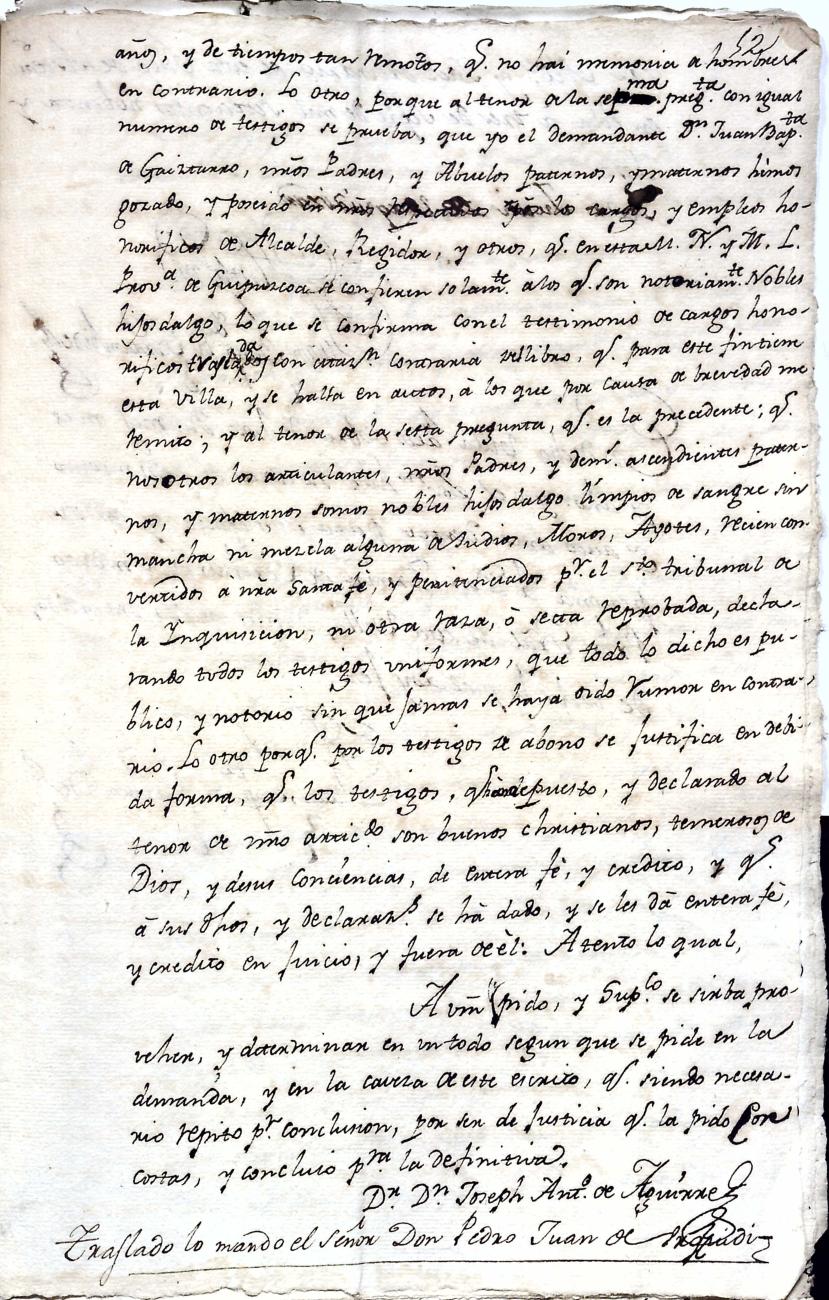 12
años, y de tiempos tan remotos, q.e no hai memoria de hombres
en contrario. Lo otro, porque al tenor de la sepma preg.ta con igual
numero de testigos se prueba, que yo el demandante D.n Juan Bap.ta
de Gaiztarro, nr̃os Padres, y Abuelos paternos, y maternos hemos
gozado, y poseido en nr̃os respectivos los cargos, y empleos ho-
norificos de Alcalde, Regidor, y otros, q.e en esta M. N. y M. L.
Prov.a de Guipuzcoa se confieren solam.te à los q.e son notoriam.te Nobles
hijosdalgo, lo que se confirma con el testimonio de cargos hono-
rificos traslados con citaz.n contraria del libro, q.e para este fin tiene
esta Villa, y se halla en autos, à los que por causa de brevedad me
remito; y al tenor de la sesta pregunta, q.e es la precedente; q.e
nosotros los articulantes, nr̃os Padres, y dem.s ascendientes pater-
nos, y maternos somos nobles hijosdalgo limpios de sangre sin
mancha ni mezcla alguna de Judios, Moros, Agotes, recien con-
vertidos à nr̃a Santa fè, y penitenciados p.r el s.to tribunal de
la Inquisicion, ni otra raza, ò secta reprobada, decla-
rando todos los testigos uniformes, que todo lo dicho es pu-
blico, y notorio sin que jamas se haya oido rumor en contra-
rio. Lo otro porq.e por los testigos de abono se justifica en debi-
da forma, q.e los testigos, q.e han depuesto, y declarado al
tenor de nr̃o artic.do son buenos christianos, temerosos de
Dios, y de sus conciencias, de entera fè, y credito, y q.e
à sus dhos, y declaraz.s se hà dado, y se les dà entera fè,
y credito en juicio, y fuera de èl: Atento lo qual,
A vm pido, y Sup.co se sirba pro-
veher, y determinar en un todo segun que se pide en la
demanda, y en la caveza de este escrito, q.e siendo necesa-
rio repito p.r conclusion, por ser de justicia q.e la pido con
costas, y concluio p.ra la definitiva.
D.r D.n Joseph Ant.o de Aguirre
Traslado lo mando el señor Don Pedro Juan de